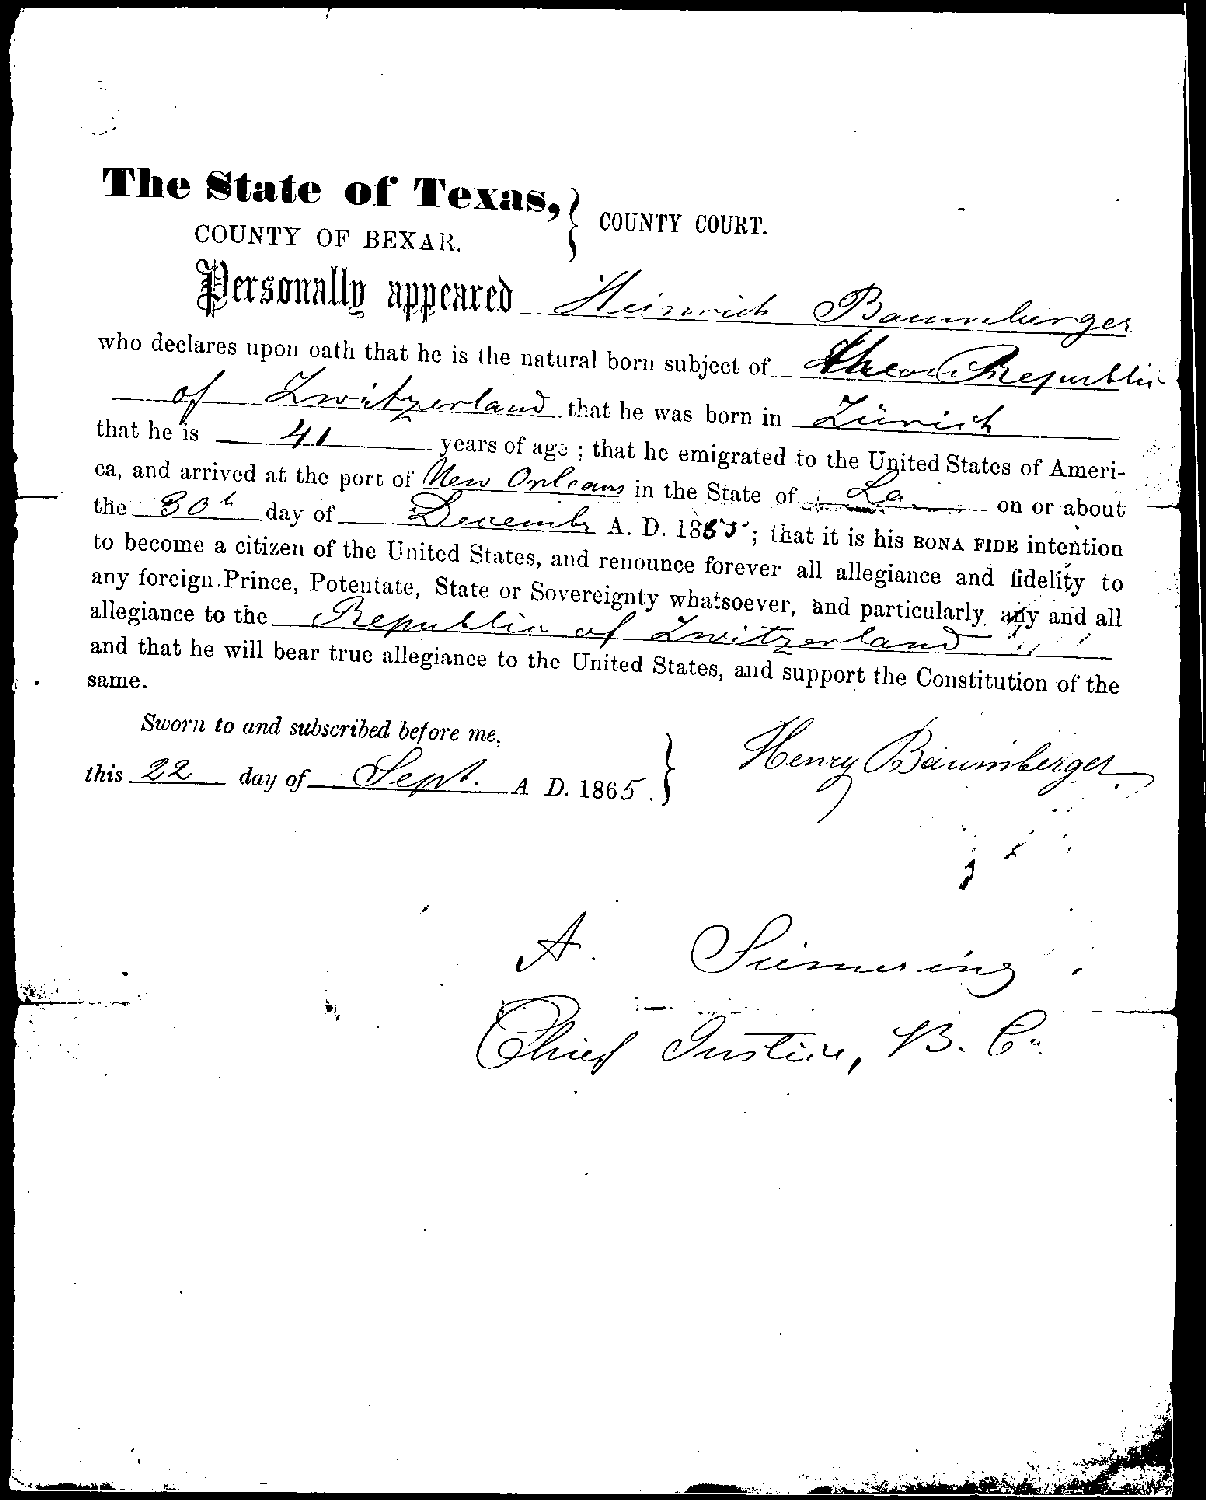 The State of Texas,
COUNTY OF BEXAR.
COUNTY COURT.
Personally appeared Heinrich Baumberger
who declares upon oath that he is the natural born subject of the Republic
of Zwitzerland that he was born in Zürich
that he is 41 years of age; that he emigrated to the United States of Ameri-
ca, and arrived at the port of New Orleans in the State of La on or about
the 30th day of December A. D. 1853; that it is his BONA FIDE intention
to become a citizen of the United States, and renounce forever all allegiance and fidelity to
any foreign Prince, Potentate, State or Sovereignty whatsoever, and particularly any and all
allegiance to the Republic of Zwitzerland
and that he will bear true allegiance to the United States, and support the Constitution of the
same.
Sworn to and subscribed before me,
this 22 day of Sept. A D. 1865.
Henry Baumberger
A. Siemering
Chief Justice, B. Co.